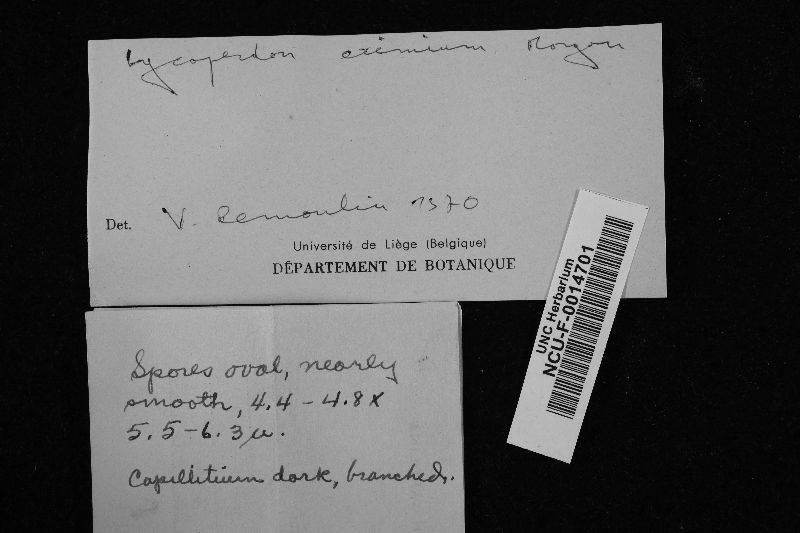 Lycoperdon eximium Morgan
Det. V. Demoulin 1970
Université de Liège (Belgique)
DÉPARTEMENT DE BOTANIQUE
UNC Herbarium
NCU-F-0014701
Spores oval, nearly
smooth, 4.4 - 4.8 x
5.5 - 6.3 µ.
Capillitium dark, branched.